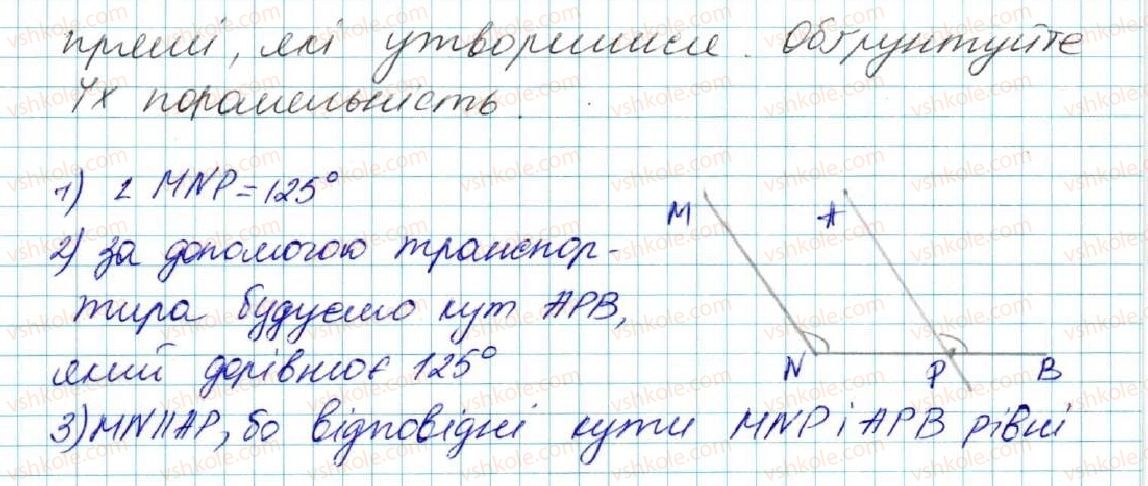 прямі, які утворилися. Обґрунтуйте
їх паралельність.
1) ∠ MNP = 125°
2) за допомогою транспор-
тира будуємо кут APB,
який дорівнює 125°
3) MN || AP, бо відповідні кути MNP і APB рівні
M A
N P B
vshkole.com